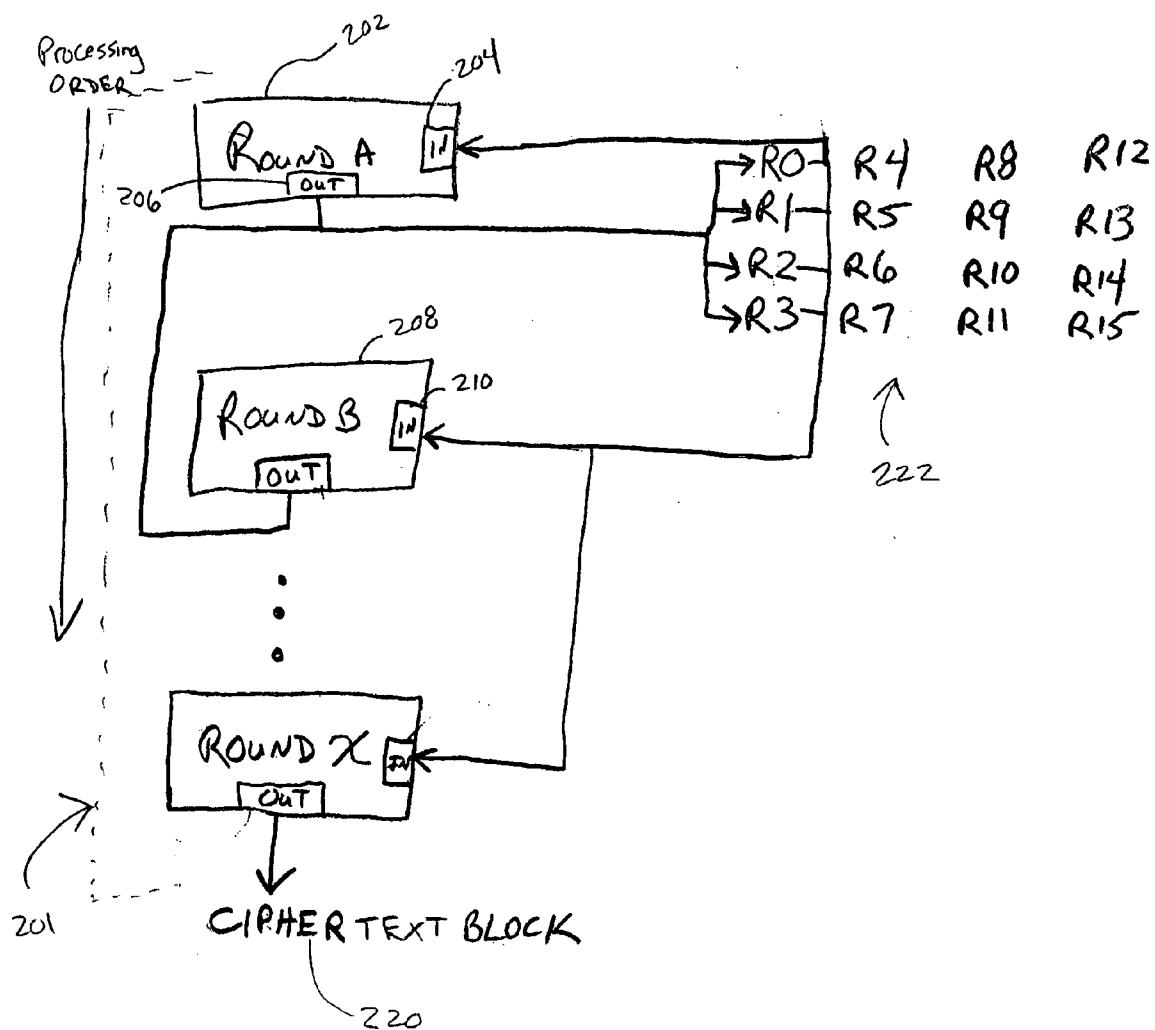 Processing
ORDER
202
204
ROUND A
IN
OUT
206
R0 R4 R8 R12
R1 R5 R9 R13
R2 R6 R10 R14
R3 R7 R11 R15
222
208
210
ROUND B
IN
OUT
ROUND X
IN
OUT
201
CIPHER TEXT BLOCK
220